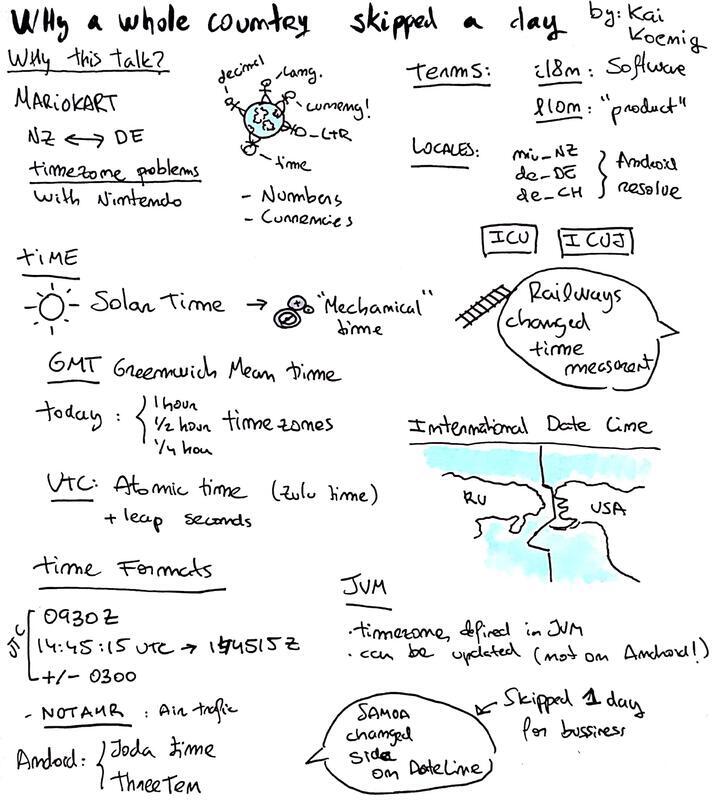 Why a whole country skipped a day
by: Kai
Koenig
Why this talk?
MARIOKART
NZ ↔ DE
timezone problems
with Nintendo
decimal
lang.
currency!
LTR
time
- Numbers
- Currencies
terms: i18n: Software
l10n: "product"
LOCALES: mi_NZ
de_DE
de_CH
Android
resolve
ICU ICU4J
TIME
Solar Time → "Mechanical"
time
Railways
changed
time
measurent
GMT Greenwich Mean time
today: 1 hour
1/2 hour
1/4 hou
timezones
UTC: Atomic time (zulu time)
+ leap seconds
International Date Line
RU
USA
time Formats
UTC
0930Z
14:45:15 UTC → 144515Z
+/- 0300
- NOTAMR : Air trafic
Android: Joda time
ThreeTen
JVM
· timezone, defined in JVM
· can be updated (not on Android!)
SAMOA
changed
side
on DateLine
Skipped 1 day
for bussiness